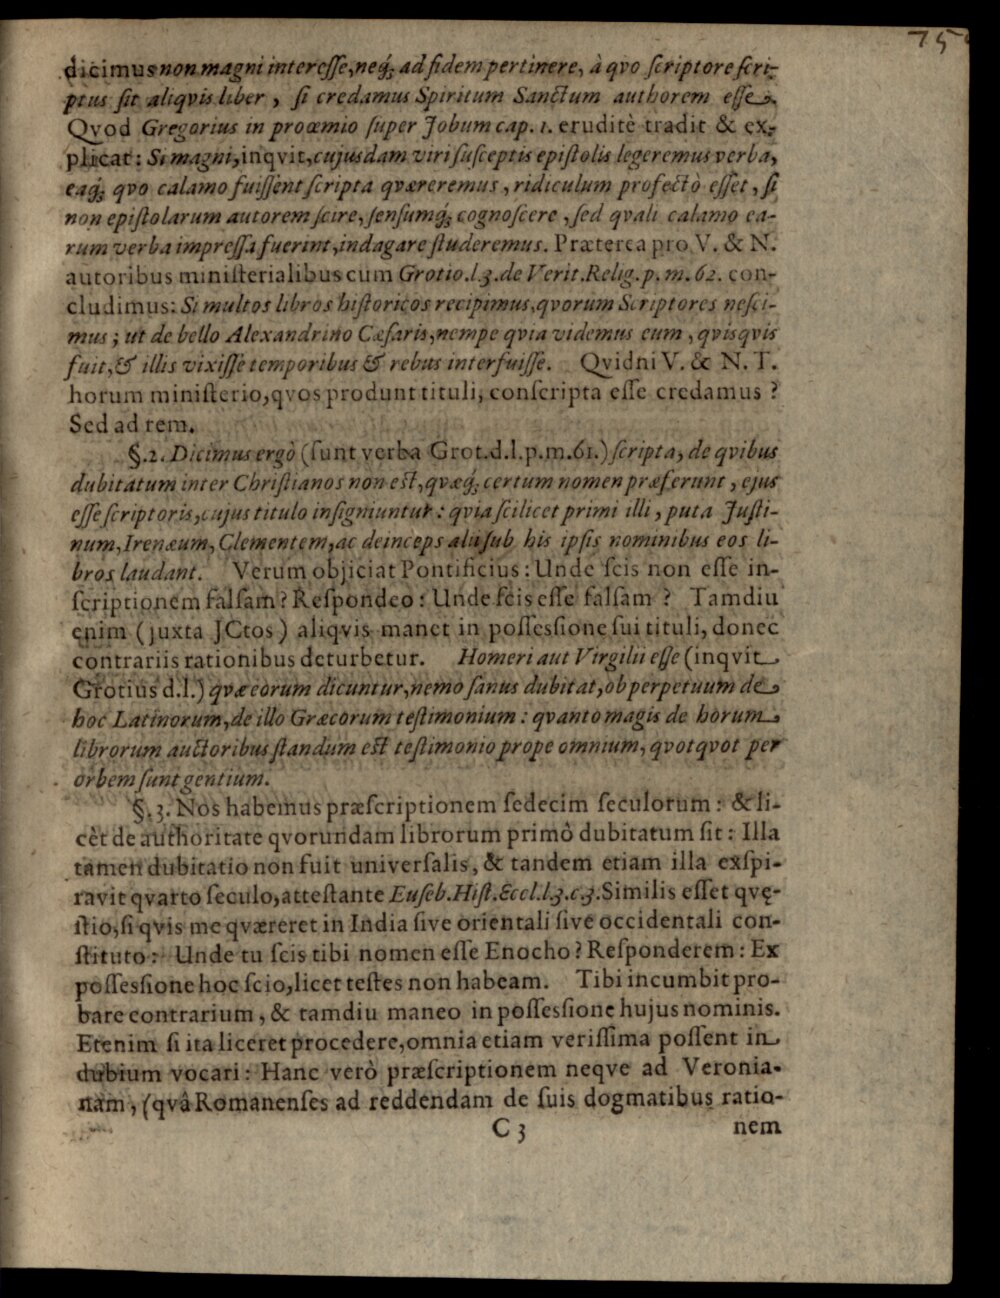 75
dicimus non magni interesse, neq; ad fidem pertinere, à qvo scriptore scri-
ptus sit aliqvis liber, si credamus Spiritum Sanctum authorem esse.
Qvod Gregorius in proœmio super Jobum cap. 1. eruditè tradit & ex-
plicat: Si magni, inqvit, cujusdam viri susceptis epistolis legeremus verba,
eaq; qvo calamo fuissent scripta qværeremus, ridiculum profectò esset, si
non epistolarum autorem scire, sensumq; cognoscere, sed qvali calamo ea-
rum verba impressa fuerint, indagare studeremus. Præterea pro V. & N.
autoribus ministerialibus cum Grotio. l. 3. de Verit. Relig. p. m. 62. con-
cludimus: Si multos libros historicos recipimus, qvorum Scriptores nesci-
mus; ut de bello Alexandrino Cæsaris, nempe qvia videmus eum, qvisqvis
fuit, & illis vixisse temporibus & rebus interfuisse. Qvidni V. & N. T.
horum ministerio, qvos produnt tituli, conscripta esse credamus?
Sed ad rem.
§. 2. Dicimus ergò (sunt verba Grot. d. l. p. m. 61.) scripta, de qvibus
dubitatum inter Christianos non est, qvæq; certum nomen præferunt, ejus
esse scriptoris, cujus titulo insigniuntur: qvia scilicet primi illi, puta Justi-
num, Irenæum, Clementem, ac deinceps alii sub his ipsis nominibus eos li-
bros laudant. Verum objiciat Pontificius: Unde scis non esse in-
scriptionem falsam? Respondeo: Unde scis esse falsam? Tamdiu
enim (juxta JCtos) aliqvis manet in possessione sui tituli, donec
contrariis rationibus deturbetur. Homeri aut Virgilii esse (inqvit
Grotius d. l.) qvæ eorum dicuntur, nemo sanus dubitat, ob perpetuum de
hoc Latinorum, de illo Græcorum testimonium: qvanto magis de horum
librorum auctoribus standum est testimonio prope omnium, qvotqvot per
orbem sunt gentium.
§. 3. Nos habemus præscriptionem sedecim seculorum: & li-
cèt de authoritate qvorundam librorum primò dubitatum sit: Illa
tamen dubitatio non fuit universalis, & tandem etiam illa exspi-
ravit qvarto seculo, attestante Euseb. Hist. Eccl. l. 3. c. 3. Similis esset qvę-
stio, si qvis me qværeret in India sive orientali sive occidentali con-
stituto: Unde tu scis tibi nomen esse Enocho? Responderem: Ex
possessione hoc scio, licet testes non habeam. Tibi incumbit pro-
bare contrarium, & tamdiu maneo in possessione hujus nominis.
Etenim si ita liceret procedere, omnia etiam verissima possent in
dubium vocari: Hanc verò præscriptionem neqve ad Veronia-
nam, (qvâ Romanenses ad reddendam de suis dogmatibus ratio-
C 3 nem